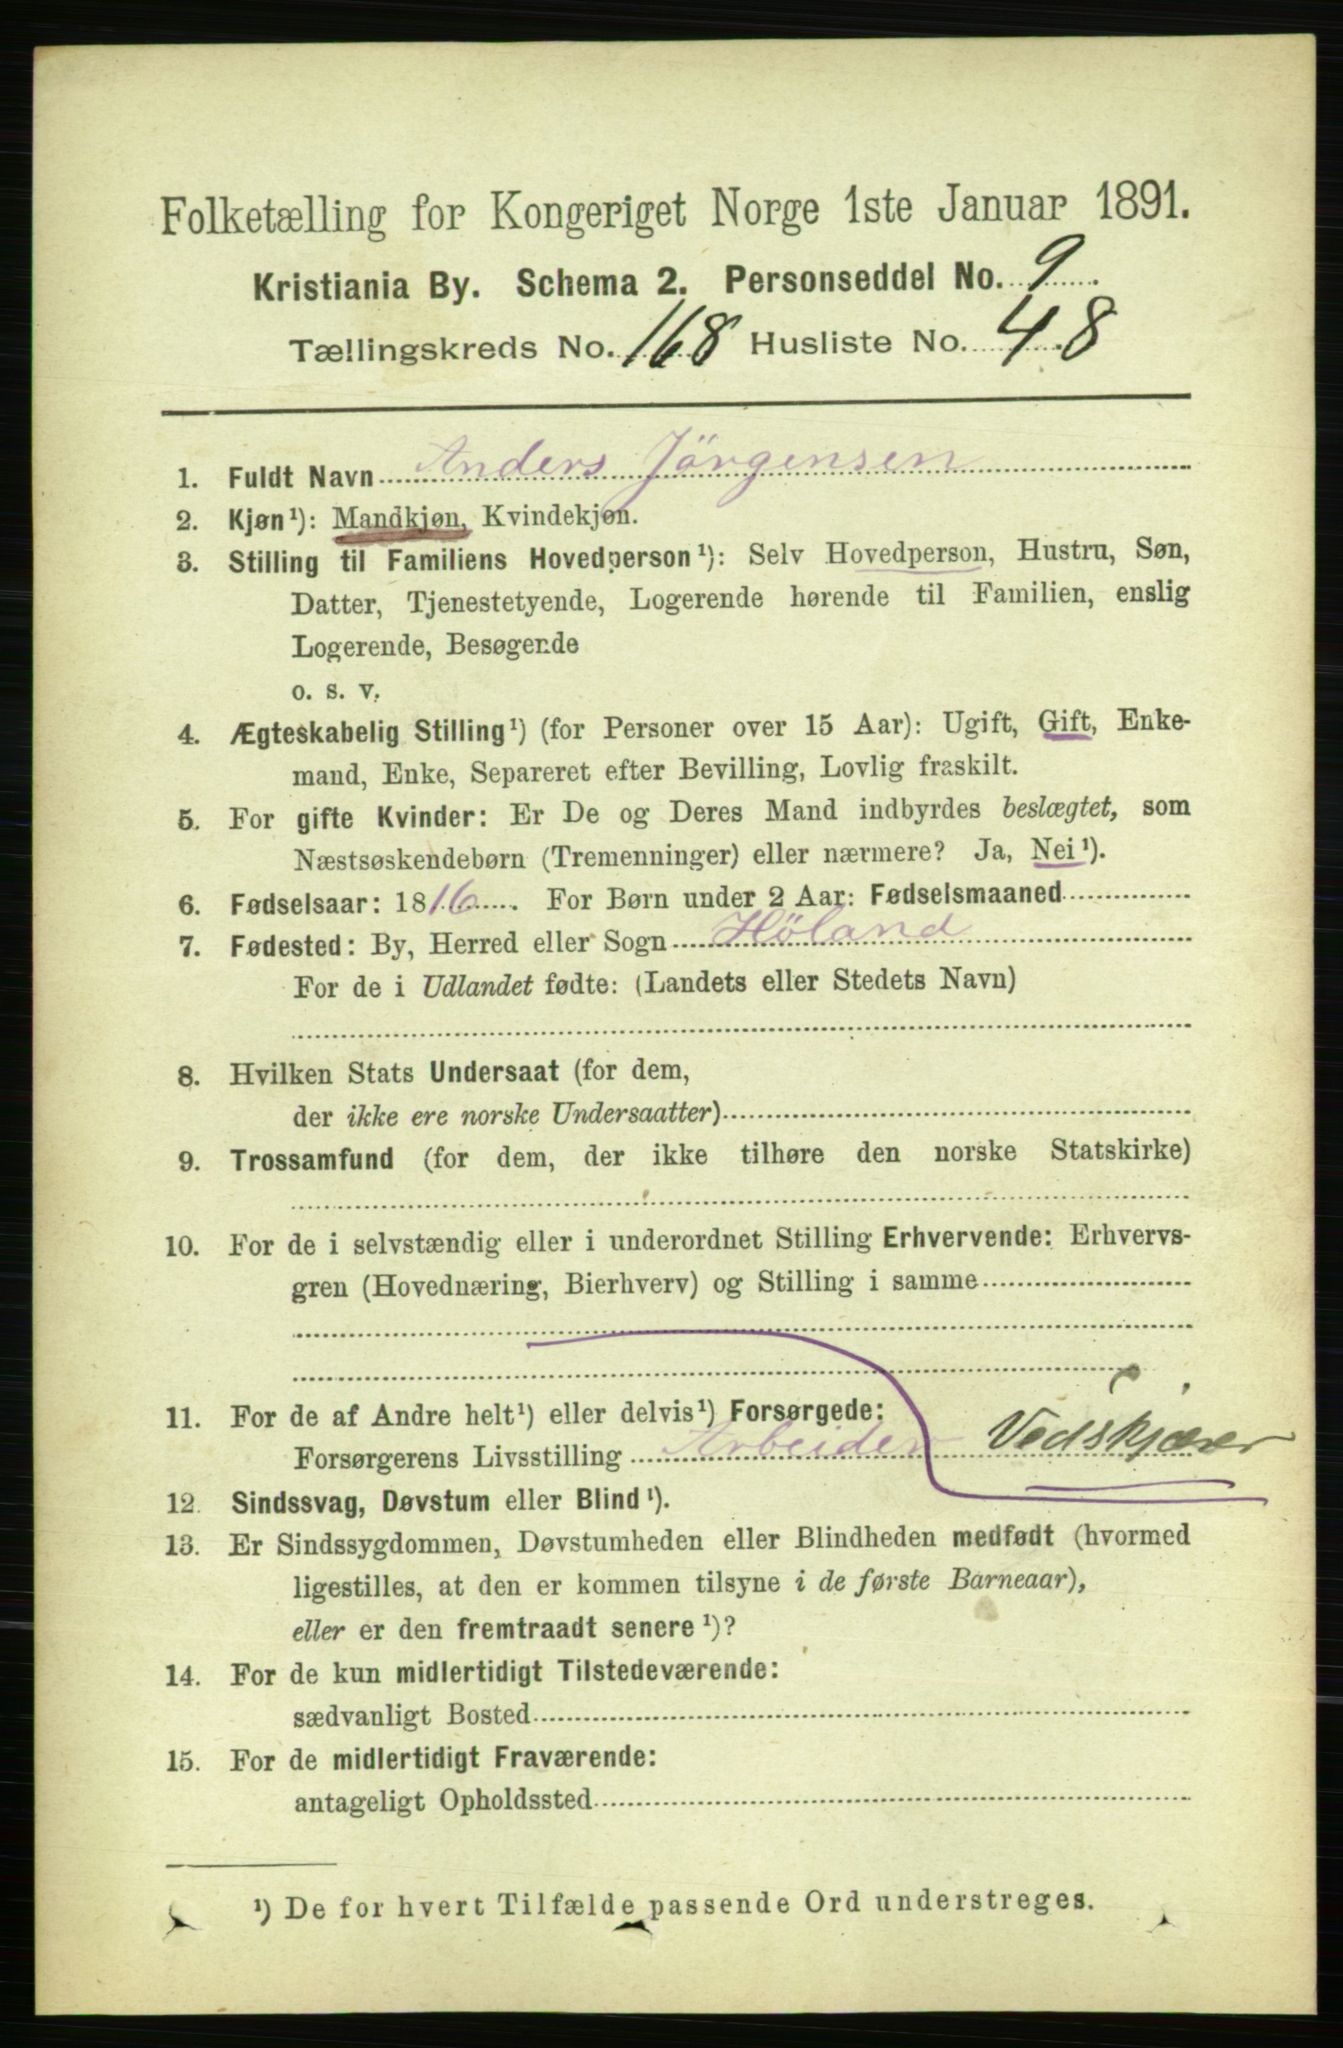 Folketælling for Kongeriget Norge 1ste Januar 1891.
Kristiania By. Schema 2. Personseddel No. 9
Tællingskreds No. 168 Husliste No. 48
1. Fuldt Navn Anders Jörgensen
2. Kjøn¹): Mandkjøn, Kvindekjøn.
3. Stilling til Familiens Hovedperson¹): Selv Hovedperson, Hustru, Søn,
Datter, Tjenestetyende, Logerende hørende til Familien, enslig
Logerende, Besøgende
o. s. v.
4. Ægteskabelig Stilling¹) (for Personer over 15 Aar): Ugift, Gift, Enke-
mand, Enke, Separeret efter Bevilling, Lovlig fraskilt.
5. For gifte Kvinder: Er De og Deres Mand indbyrdes beslægtet, som
Næstsøskendebørn (Tremenninger) eller nærmere? Ja, Nei¹).
6. Fødselsaar: 1816. For Børn under 2 Aar: Fødselsmaaned
7. Fødested: By, Herred eller Sogn Höland
For de i Udlandet fødte: (Landets eller Stedets Navn)
8. Hvilken Stats Undersaat (for dem,
der ikke ere norske Undersaatter)
9. Trossamfund (for dem, der ikke tilhøre den norske Statskirke)
10. For de i selvstændig eller i underordnet Stilling Erhvervende: Erhvervs-
gren (Hovednæring, Bierhverv) og Stilling i samme
11. For de af Andre helt¹) eller delvis¹) Forsørgede:
Forsørgerens Livsstilling Arbeider Vedskjærer
12. Sindssvag, Døvstum eller Blind¹).
13. Er Sindssygdommen, Døvstumheden eller Blindheden medfødt (hvormed
ligestilles, at den er kommen tilsyne i de første Barneaar),
eller er den fremtraadt senere¹)?
14. For de kun midlertidigt Tilstedeværende:
sædvanligt Bosted
15. For de midlertidigt Fraværende:
antageligt Opholdssted
¹) De for hvert Tilfælde passende Ord understreges.